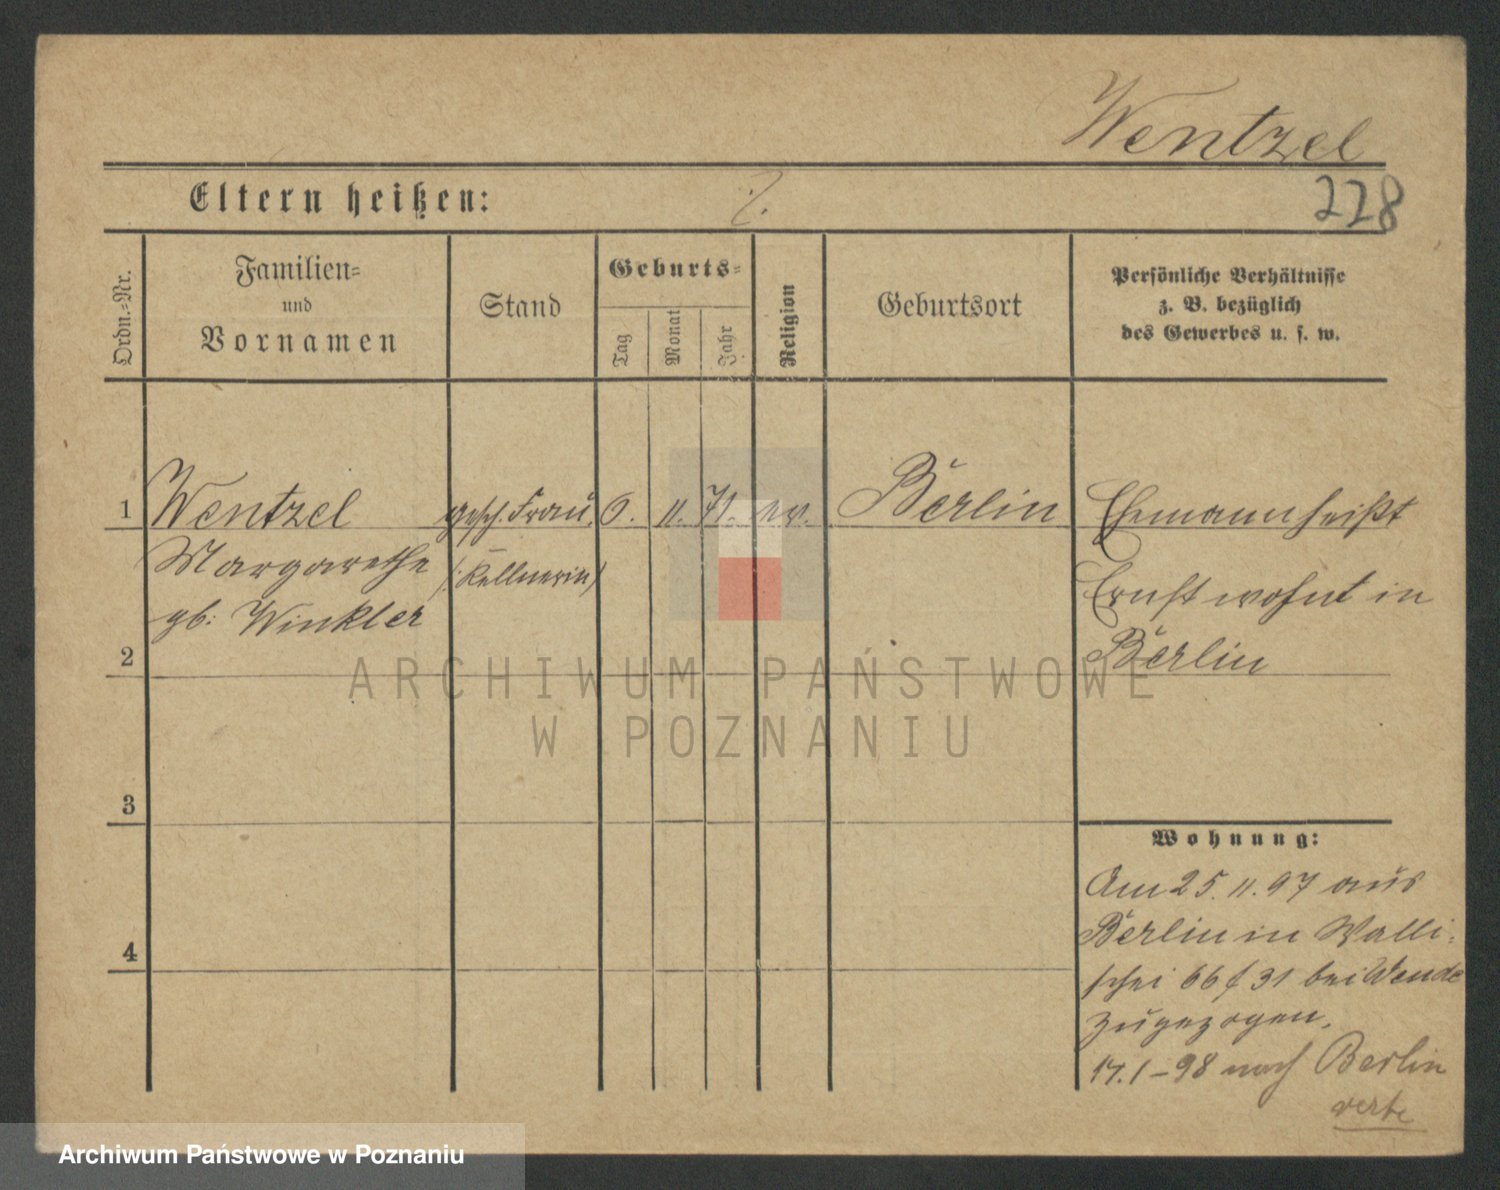 Wentzel
Eltern heißen:
228
Ordn.-Nr.
Familien-
und
Vornamen
Stand
Geburts-
Tag
Monat
Jahr
Religion
Geburtsort
Persönliche Verhältnisse
z. B. bezüglich
des Gewerbes u. s. w.
1 Wentzel gesch. Frau. 6. 11. 71. ev. Berlin
Margarethe (:Kellnerin)
gb: Winkler
Ehemann heißt
Ernst wohnt in
Berlin
2
3
4
Wohnung:
Am 25. 11. 97 aus
Berlin in Walli-
schei 66 31 bei Wende
zugezogen.
17. 1 - 98 nach Berlin
verte
ARCHIWUM PAŃSTWOWE
W POZNANIU
Archiwum Państwowe w Poznaniu